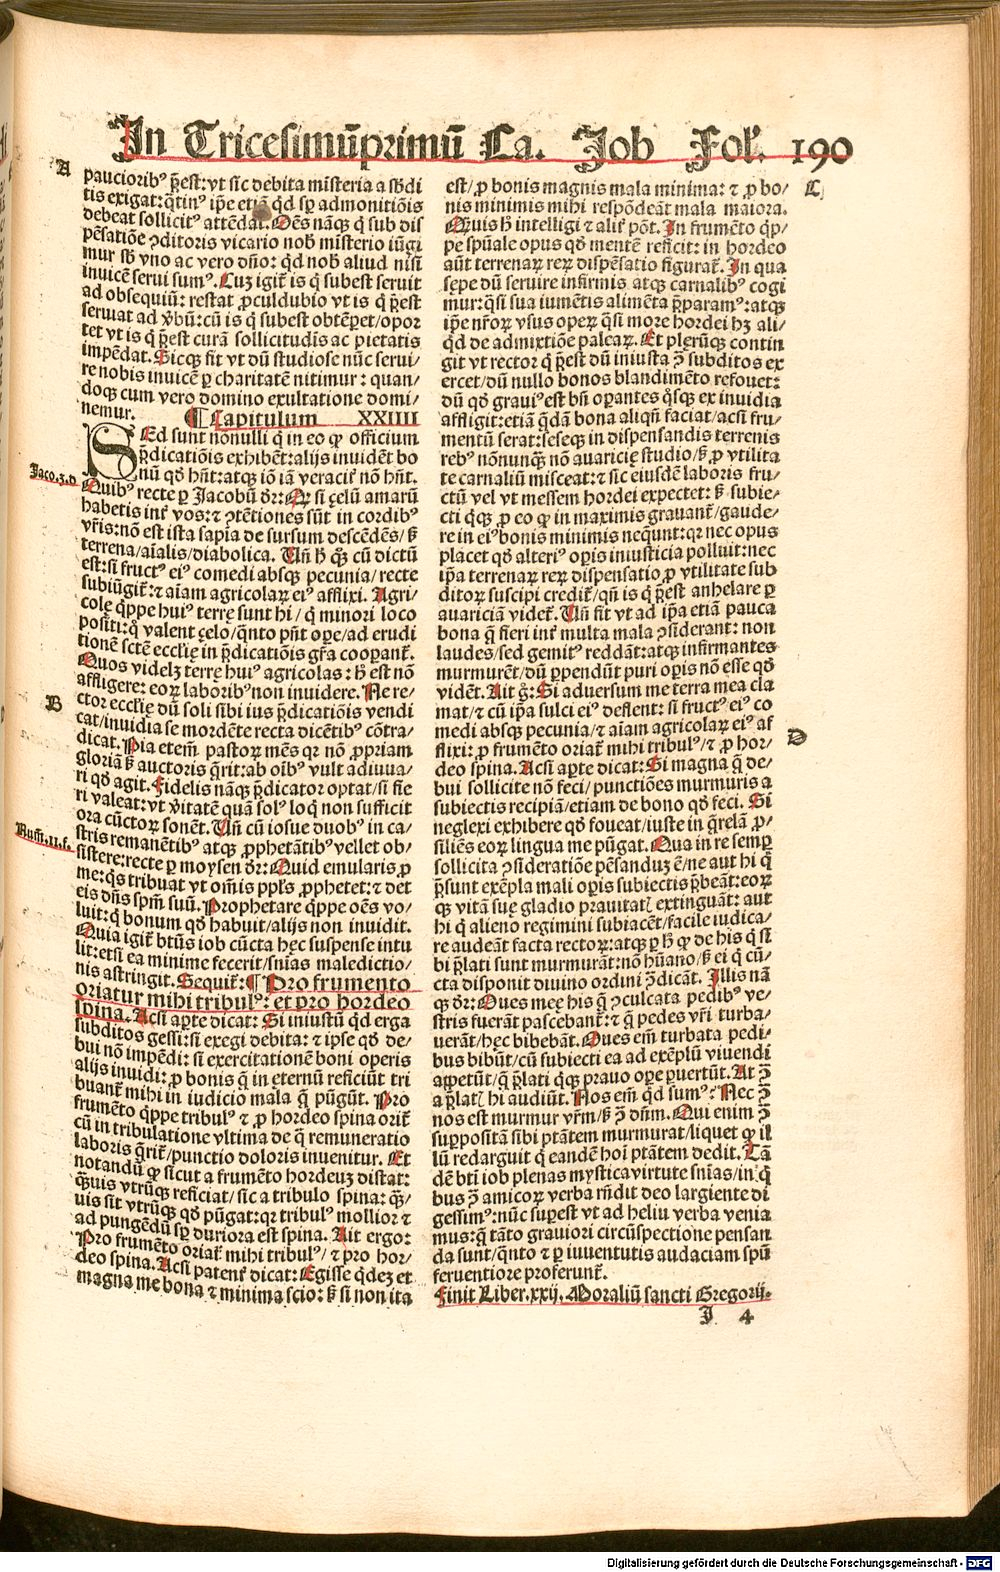 In Tricesimũprimũ Ca. Job Folꝰ. 190
A
paucioribꝰ p̄est: vt sic debita misteria a sb̓di
tis exigat: q̃tinꝰ ip̄e etiã qd̓ sp̄ admonitiõis
debeat sollicitꝰ attẽdat. Oẽs nãqꝫ q̓ sub dis
pẽsatiõe ↄditoris vicario nob̓ misterio iũgi
mur sb̓ vno ac vero dño: qd̓ nob̓ aliud nisi
inuicẽ serui sumꝰ. Cuꝫ igit᷑ is q̓ subest seruit
ad obsequiũ: restat ꝓculdubio vt is q̓ p̄est
seruiat ad v̓bũ: cũ is q̓ subest obtẽꝑet/opor
tet vt is q̓ p̄est curã sollicitudis ac pietatis
impẽdat. Sicqꝫ fit vt dũ studiose nũc serui/
re nobis inuicẽ ꝑ charitatẽ nitimur: quan/
doqꝫ cum vero domino exultatione domi/
nemur. ¶ Capitulum XXIIII
SEd sunt nonulli q̓ in eo ꝙ officium
p̄dicatiõis exhibẽt: alijs inuidẽt bo
nũ qd̓ hñt: atqꝫ iõ iã veracit᷑ nõ hñt.
Jaco.3.d
Quibꝰ recte ꝑ Jacobũ dr̃: Qꝛ si ęelũ amarũ
habetis int᷑ vos: ⁊ ↄtẽtiones sũt in cordibꝰ
vr̃is: nõ est ista sapia de sursum descẽdẽs/ sꝫ
terrena/aĩalis/diabolica. Uñ h̓ q̃qꝫ cũ dictũ
est: si fructꝰ eiꝰ comedi absqꝫ pecunia/recte
subiũgit᷑: ⁊ aĩam agricolaꝝ eiꝰ afflixi. Agri/
cole q̃ppe huiꝰ terrę sunt hi / q̓ minori loco
positi: q̓ valent ęelo/q̃nto pñt oꝑe/ad erudi
tionẽ sctẽ eccl̃ię in p̄dicatiõis gr̃a cooꝑant᷑.
Quos videlꝫ terrę huiꝰ agricolas: h̓ est nõ
affligere: eoꝝ laboribꝰ non inuidere. Ne re/
B
ctor eccl̃ię dũ soli sibi ius p̄dicatiõis vendi
cat/inuidia se mordẽte recta dicẽtibꝰ cõtra/
dicat. Pia etem̃ pastoꝝ mẽs qꝛ nõ ꝓpriam
gloriã sꝫ auctoris q̃rit: ab oĩbꝰ vult adiuua/
ri qd̓ agit. Fidelis nãqꝫ p̄dicator optat/si fie
ri valeat: vt v̓itatẽ quã solꝰ loq̓ non sufficit
ora cũctoꝝ sonẽt. Uñ cũ iosue duobꝰ in ca/
Num̃.11.f.
stris remanẽtibꝰ atqꝫ ꝓphetãtibꝰ vellet ob/
sistere: recte ꝑ moysen dr̃: Quid emularis ꝓ
me: q̓s tribuat vt om̃is pp̃ls ꝓphetet: ⁊ det
eis dñs sp̃m suũ. Prophetare q̃ppe oẽs vo/
luit: q̓ bonum qd̓ habuit/alijs non inuidit.
Quia igit᷑ bt̃us iob cũcta hęc suspense intu
lit: etsi ea minime fecerit/sñias maledictio/
nis astringit. Sequit᷑: ¶ Pro frumento
oriatur mihi tribulꝰ: et pro hordeo
spina. Acsi aꝑte dicat: Si iniustũ qd̓ erga
subditos gessi: si exegi debita: ⁊ ipse qd̓ de/
bui nõ impẽdi: si exercitationẽ boni operis
alijs inuidi: ꝓ bonis q̃ in eternũ reficiũt tri
buant᷑ mihi in iudicio mala q̃ pũgũt. Pro
frumẽto q̃ppe tribulꝰ ⁊ ꝓ hordeo spina orit᷑
cũ in tribulatione vltima de q̃ remuneratio
laboris q̃rit᷑/punctio doloris inuenitur. Et
notandũ ꝙ sicut a frumẽto hordeuꝫ distat:
q̃uis vtrũqꝫ reficiat/ sic a tribulo spina: q̃ꝫ/
uis sit vtrũqꝫ qd̓ pũgat: qꝛ tribulꝰ mollior ⁊
ad pungẽdũ sp̄ duriora est spina. Ait ergo:
Pro frumẽto oriat᷑ mihi tribulꝰ/ ⁊ pro hor/
deo spina. Acsi patent᷑ dicat: Egisse q̓deꝫ et
magna me bona ⁊ minima scio: sꝫ si non ita
C
est/ ꝓ bonis magnis mala minima: ⁊ ꝓ bo/
nis minimis mihi respõdeãt mala maiora.
Q̃uis h̓ intelligi ⁊ alit᷑ põt. In frumẽto q̃p/
pe spũale opus qd̓ mentẽ reficit: in hordeo
aũt terrenaꝝ reꝝ dispẽsatio figurat᷑. In qua
sępe dũ seruire infirmis atqꝫ carnalibꝰ cogi
mur: q̃si sua iumẽtis alimẽta p̄paramꝰ: atqꝫ
ip̄e nr̃oꝝ vsus operꝝ q̃si more hordei hꝫ ali/
qd̓ de admixtiõe paleaꝝ. Et plerũqꝫ contin
git vt rector q̓ p̄est dũ iniusta ↄ̃ subditos ex
ercet/dũ nullo bonos blandimẽto refouet:
dũ qd̓ grauiꝰ est bñ oꝑantes q̓sqꝫ ex inuidia
affligit: etiã q̃dã bona aliqñ faciat/acsi fru/
mentũ serat: seseqꝫ in dispensandis terrenis
rebꝰ nõnunqꝫ nõ auaricię studio/sꝫ ꝓ vtilita
te carnaliũ misceat: ⁊ sic eiusdẽ laboris fru/
ctũ vel vt messem hordei expectet: sꝫ subie/
cti q̓qꝫ ꝓ eo ꝙ in maximis grauant᷑/gaude/
re in eiꝰ bonis minimis neq̃unt: qꝛ nec opus
placet qd̓ alteriꝰ oꝑis iniusticia polluit: nec
ip̄a terrenaꝝ reꝝ dispensatio ꝓ vtilitate sub
ditoꝝ suscipi credit᷑/qñ is q̓ p̄est anhelare ꝑ
auariciã videt᷑. Uñ fit vt ad ip̄a etiã pauca
bona q̃ fieri int᷑ multa mala ↄsiderant: non
laudes/sed gemitꝰ reddãt: atqꝫ infirmantes
murmurẽt/dũ ꝑpendũt puri oꝑis nõ esse qd̓
vidẽt. Ait g̊: Si aduersum me terra mea cla
mat/⁊ cũ ip̄a sulci eiꝰ deflent: si fructꝰ eiꝰ co
medi absqꝫ pecunia/⁊ aĩam agricolaꝝ eiꝰ af
D
flixi: ꝓ frumẽto oriat᷑ mihi tribulꝰ/⁊ ꝓ hor/
deo spina. Acsi aꝑte dicat: Si magna q̃ de/
bui sollicite nõ feci/ punctiões murmuris a
subiectis recipiã/etiam de bono qd̓ feci. Si
neglexi exhibere qd̓ foueat/iuste in q̃relã ꝓ/
siliẽs eoꝝ lingua me pũgat. Qua in re semꝑ
sollicita ↄsideratiõe pẽsanduꝫ ẽ/ne aut hi q̓
p̄sunt exẽpla mali oꝑis subiectis p̄beãt: eoꝝ
qꝫ vitã suę gladio prauitatꝭ extinguãt: aut
hi q̓ alieno regimini subiacẽt/facile iudica/
re audeãt facta rectoꝝ: atqꝫ ꝑ h̓ ꝙ de his q̓ si
bi p̄lati sunt murmurãt: nõ hũano/ sꝫ ei q̓ cũ/
cta disponit diuino ordini ↄ̃dicãt. Illis nã
qꝫ dr̃: Oues meę his q̃ ↄculcata pedibꝰ ve/
stris fuerãt pascebant᷑: ⁊ q̃ pedes vr̃i turba/
uerãt/hęc bibebãt. Oues em̃ turbata pedi/
bus bibũt/cũ subiecti ea ad exẽplũ viuendi
appetũt/q̃ p̄lati q̓qꝫ prauo oꝑe ꝑuertũt. At ↄ̃
a p̄latꝭ hi audiũt. Nos em̃ qd̓ sumꝰ? Nec ↄ̃
nos est murmur vr̃m/sꝫ ↄ̃ dñm. Qui enim ↄ̃
suppositã sibi ptãtem murmurat/liquet ꝙ il
lũ redarguit q̓ eandẽ hoĩ ptãtem dedit. Tã
dẽ bt̃i iob plenas mystica virtute sñias/in q̓
bus ↄ̃ amicoꝝ verba rñdit deo largiente di
gessimꝰ: nũc suꝑest vt ad heliu verba venia
mus: q̃ tãto grauiori circũspectione pensan
da sunt/q̃nto ⁊ ꝑ iuuentutis audaciam spũ
feruentiore proferunt᷑.
Finit Liber.xxij. Moraliũ sancti Gregorij.
J 4
Digitalisierung gefördert durch die Deutsche Forschungsgemeinschaft - DFG